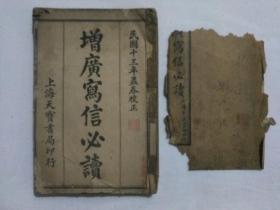 民國十三年孟春校正
增廣寫信必讀
上海天寶書局印行
寫信必讀